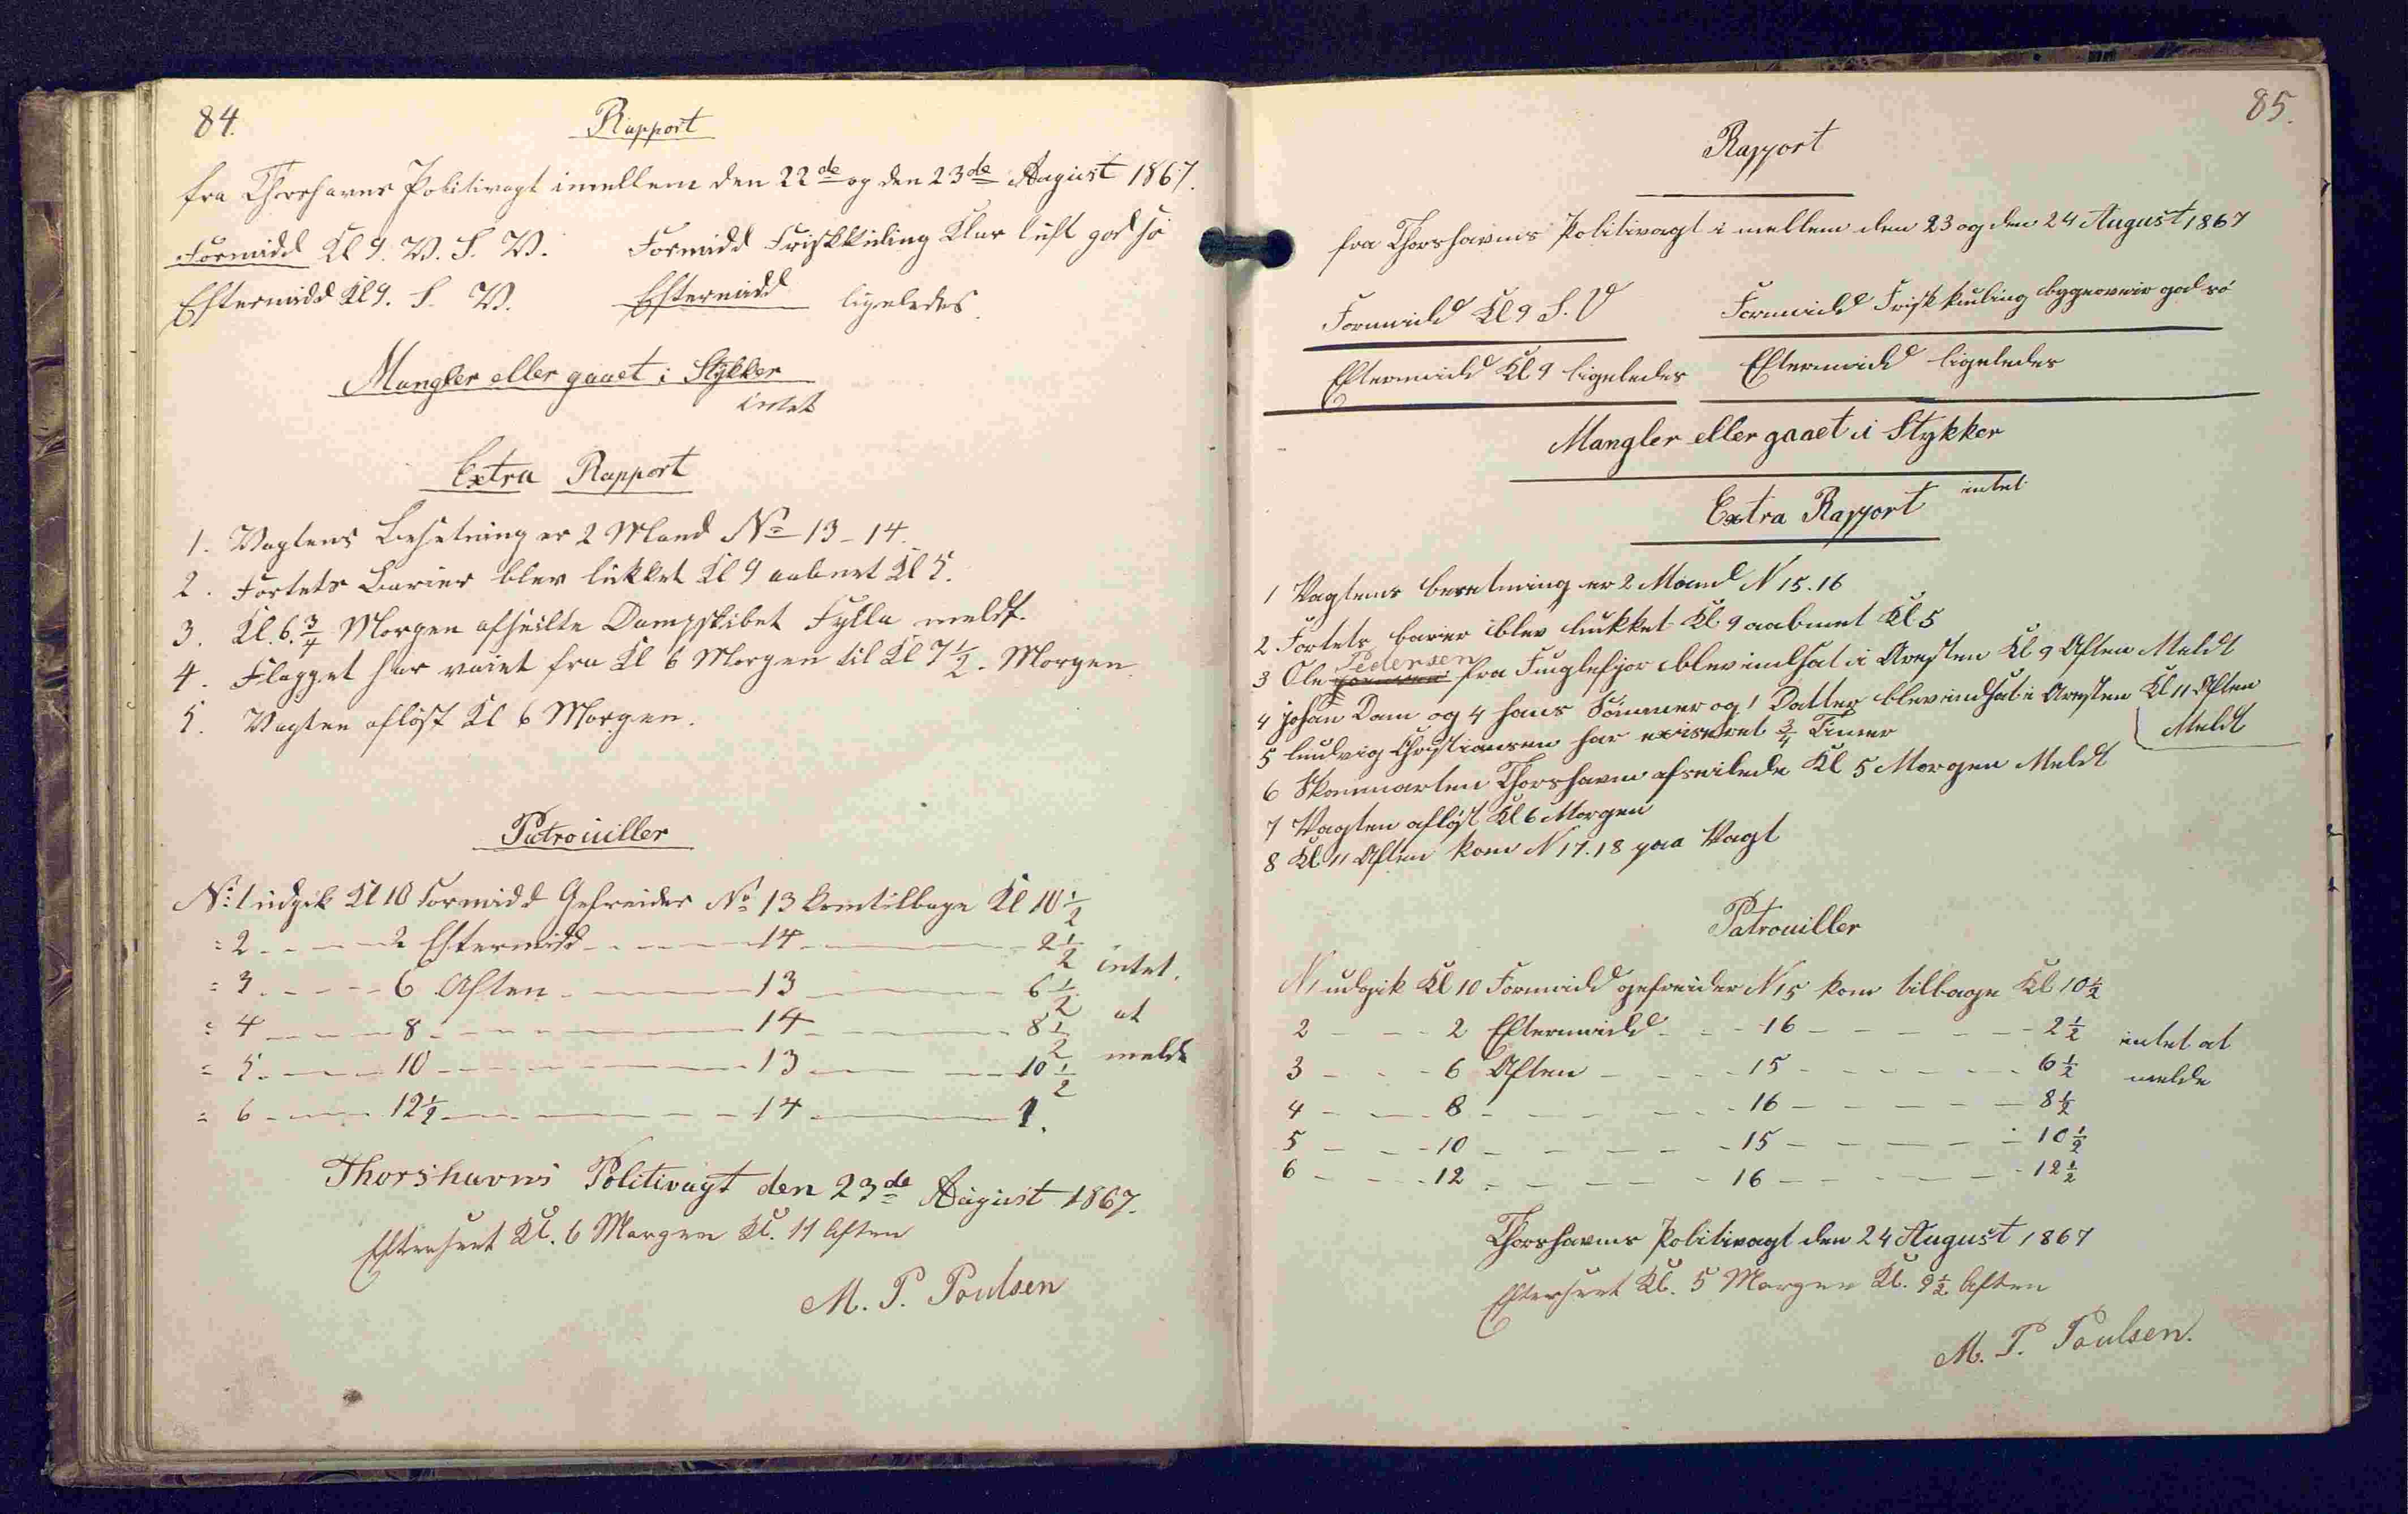 84.
Rapport
fra Thorshavns Politivagt imellem den 22de og den 23de August 1867.
Formidd Kl 9. V. S. V. Formidd Friskkuling Klar luft god sø
Eftermidd Kl 9. S. V. Eftermidd ligeledes.
Mangler eller gaaet i Stykker
intet
Extra Rapport
1. Vagtens Besetning er 2 Mand No 13-14.
2. Fortets Barier blev lukket Kl 9 aabnet Kl 5.
3. Kl. 6 3/4 Morgen afseilte Dampskibet Fylla meldt.
4. Flagget har vaiet fra Kl 6 Morgen til Kl 7 1/2. Morgen.
5. Vagten afløst Kl 6 Morgen.
Patrouiller
No: 1 udgik Kl 10 Formidd Gefreider No 13 kom tilbage Kl 10 1/2
= 2 - - - - 2 Eftermidd - - - - 14 - - - - 2 1/2
intet.
= 3 - - - - 6 Aften - - - - 13 - - - - 6 1/2
= 4 - - - - 8 - - - - 14 - - - - 8 1/2
at
= 5 - - - - 10 - - - - 13 - - - - 10 1/2
melde
= 6 - - - - 12 1/2 - - - - 14 - - - - 1.
Thorshavns Politivagt den 23de August 1867.
Efterseet Kl. 6 Morgen Kl. 11 Aften
M. P. Poulsen
85.
Rapport
fra Thorshavns Politivagt i mellem den 23 og den 24 August 1867
Formidd Kl 9 S. V Formidd Frisk kuling bygeveir god sø
Eftermidd Kl 9 ligeledes Eftermidd ligeledes
Mangler eller gaaet i Stykker
intet
Extra Rapport
1 Vagtens besetning er 2 Mand N 15. 16
2 Fortets barier blev lukket Kl. 9 aabnet Kl. 5
Pedersen
3 Ole fra Fuglefjor blev indsat i Aresten Kl 9 Aften Meldt
4 Johan Dam og 4 hans Sønner og 1 Datter blev indsat i Aresten Kl 11 Aften
Meldt
5 ludvig Christiansen har exiseret 3/4 Timer
6 Skonnarten Thorshavn afseilede Kl 5 Morgen Meldt
7 Vagten afløst Kl 6 Morgen
8 Kl 11 Aften kom N 17. 18 paa Vagt
Patrouiller
N 1 udgik Kl 10 Formidd gefreider N 15 kom tilbage Kl 10 1/2
2 - - - 2 Eftermidd - - - 16 - - - - 2 1/2
intet at
3 - - - 6 Aften - - - 15 - - - - 6 1/2
melde
4 - - - 8 - - - - 16 - - - - 8 1/2
5 - - - 10 - - - - 15 - - - - 10 1/2
6 - - - 12 - - - - 16 - - - - 12 1/2
Thorshavns Politivagt den 24 August 1867
Efterseet Kl. 5 Morgen Kl. 9 1/2 Aften
M. P. Poulsen.